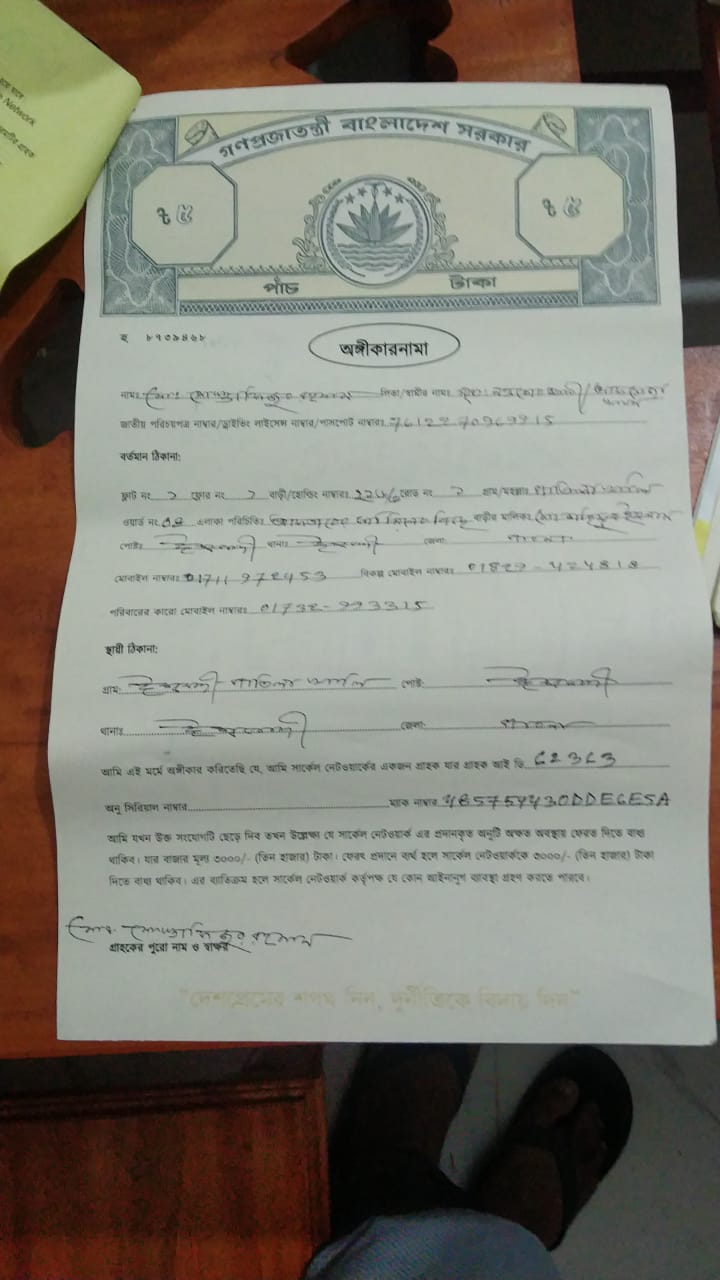 গণপ্রজাতন্ত্রী বাংলাদেশ সরকার
৳ ৫ ৳ ৫
পাঁচ টাকা
হ ৮৭০৯৪৬৮
অঙ্গীকারনামা
নামঃ মোঃ মোস্তাফিজুর রহমান পিতা/স্বামীর নামঃ
জাতীয় পরিচয়পত্র নাম্বার/ড্রাইভিং লাইসেন্স নাম্বার/পাসপোর্ট নাম্বারঃ
বর্তমান ঠিকানা:
ফ্লাট নং ১ ফ্লোর নং ১ বাড়ী/হোল্ডিং নাম্বারঃ রোড নং ১ গ্রাম/মহল্লাঃ
ওয়ার্ড নং 04 এলাকা পরিচিতিঃ বাড়ীর মালিকঃ
পোষ্টঃ ঈশ্বরদী থানাঃ ঈশ্বরদী জেলা: পাবনা
মোবাইল নাম্বারঃ 01711-972453 বিকল্প মোবাইল নাম্বারঃ 01829-424818
পরিবারের কারো মোবাইল নাম্বারঃ 01732-993315
স্থায়ী ঠিকানা:
গ্রাম: ঈশ্বরদী পোষ্ট: ঈশ্বরদী
থানাঃ ঈশ্বরদী জেলা: পাবনা
আমি এই মর্মে অঙ্গীকার করিতেছি যে, আমি সার্কেল নেটওয়ার্কের একজন গ্রাহক যার গ্রাহক আই ডি 62363
অনু সিরিয়াল নাম্বার ম্যাক নাম্বার
আমি যখন উক্ত সংযোগটি ছেড়ে দিব তখন উল্লেখ্য যে সার্কেল নেটওয়ার্ক এর প্রদানকৃত অনুটি অক্ষত অবস্থায় ফেরত দিতে বাধ্য
থাকিব। যার বাজার মূল্য ৩০০০/- (তিন হাজার) টাকা। ফেরৎ প্রদানে ব্যর্থ হলে সার্কেল নেটওয়ার্ককে ৩০০০/- (তিন হাজার) টাকা
দিতে বাধ্য থাকিব। এর ব্যতিক্রম হলে সার্কেল নেটওয়ার্ক কর্তৃপক্ষ যে কোন আইনানুগ ব্যবস্থা গ্রহণ করতে পারবে।
মোঃ মোস্তাফিজুর রহমান
গ্রাহকের পুরো নাম ও স্বাক্ষর
"দেশপ্রেমের শপথ নিন, দুর্নীতিকে বিদায় দিন"
Network
গ্রাহক